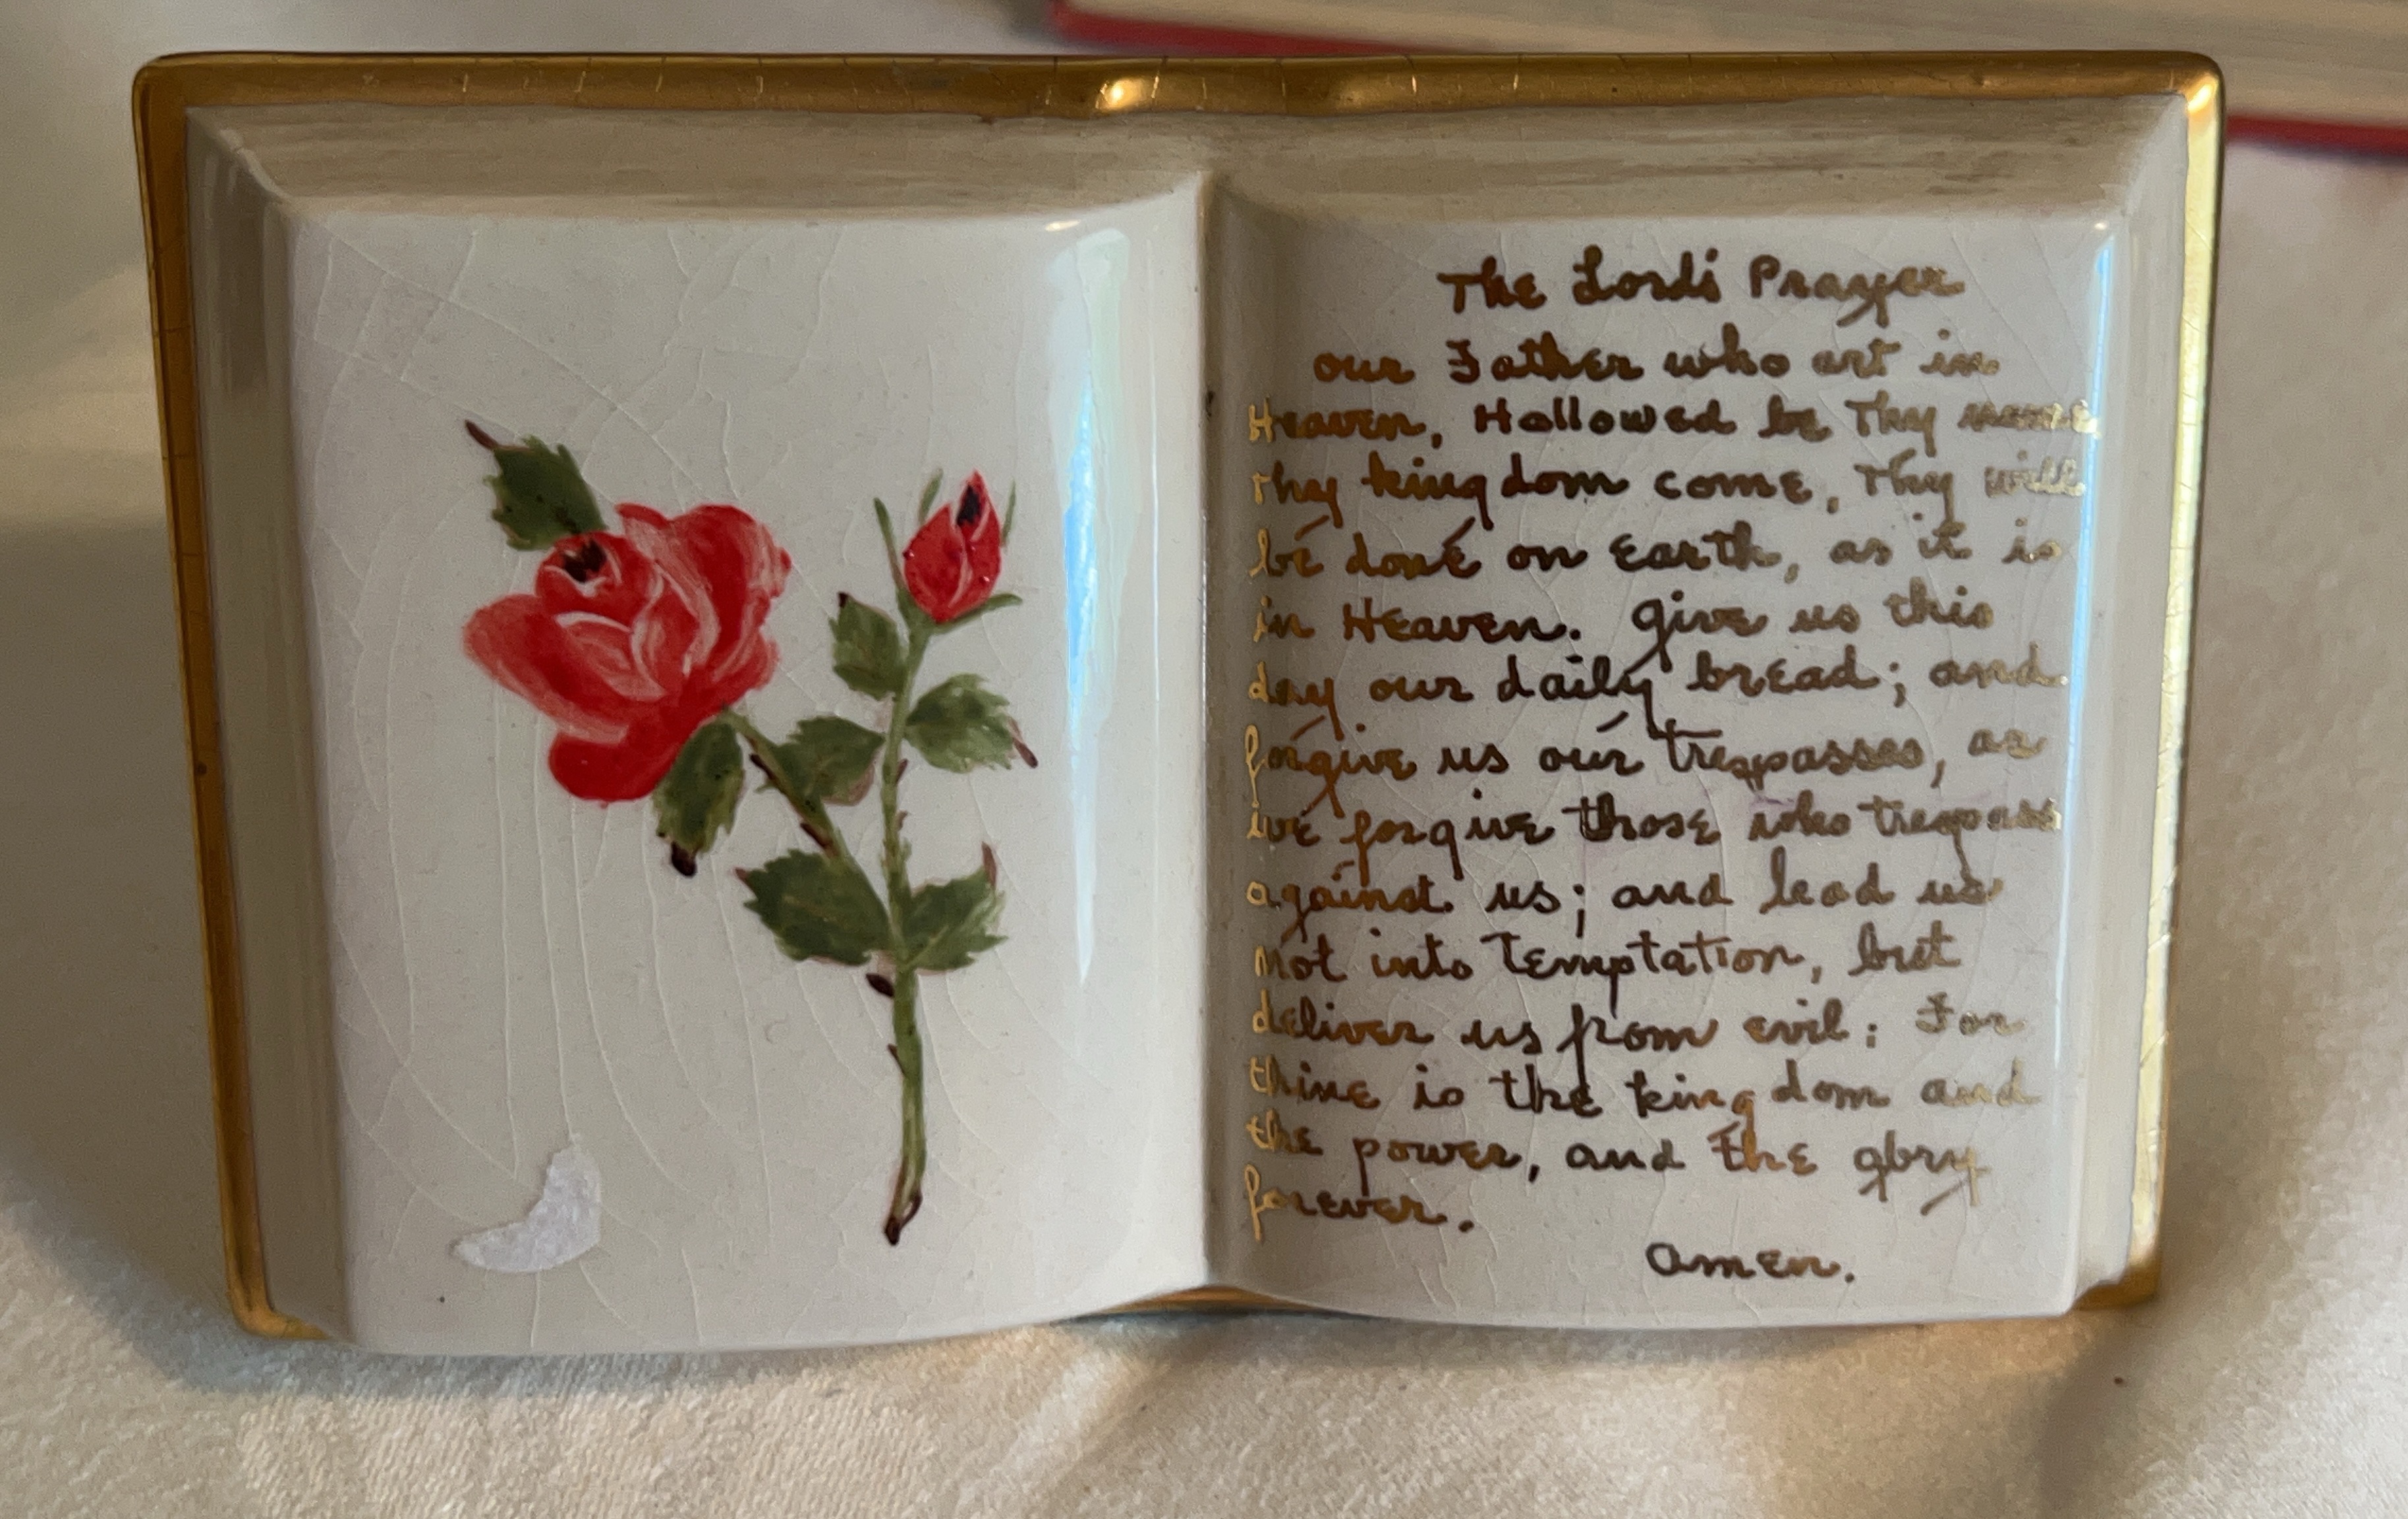 The Lord's Prayer
our Father who art in
Heaven, Hallowed be Thy name,
Thy kingdom come, Thy will
be done on Earth, as it is
in Heaven. Give us this
day our daily bread; and
forgive us our trespasses, as
we forgive those who trespass
against us; and lead us
not into Temptation, but
deliver us from evil: For
thine is the kingdom and
the power, and the glory
forever.
Amen.